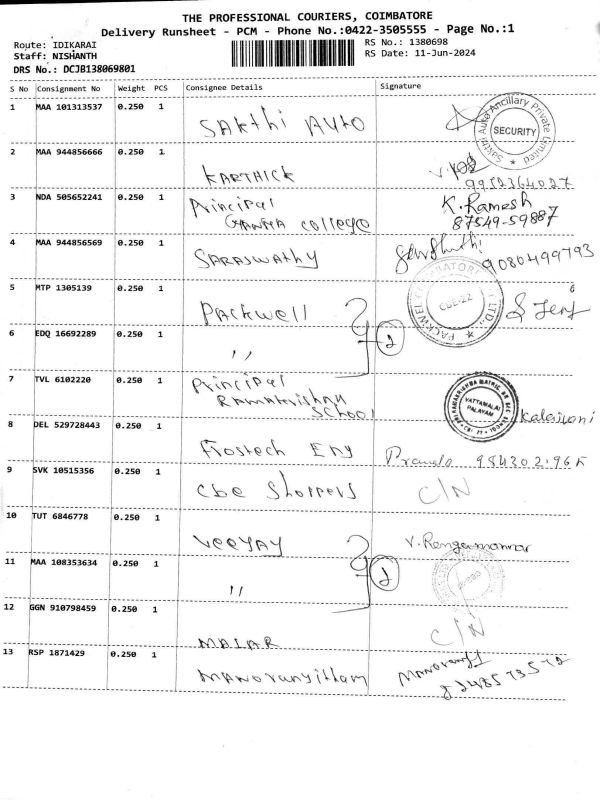 THE PROFESSIONAL COURIERS, COIMBATORE
Delivery Runsheet - PCM - Phone No.:0422-3505555 - Page No.:1
Route: IDIKARAI
RS No.: 1380698
Staff: NISHANTH
RS Date: 11-Jun-2024
DRS No.: DCJB138069801
S No Consignment No Weight PCS Consignee Details Signature
1 MAA 101313537 0.250 1 Sakthi Auto
Sakthi Auto Ancillary Private Limited
SECURITY
2 MAA 944856666 0.250 1 KARTHICK
9952364027
3 NDA 505652241 0.250 1 Principal K. Ramesh
Ganga College 87549-59887
4 MAA 944856569 0.250 1 Saraswathy
9080499793
5 MTP 1305139 0.250 1 Packwell
CBE-22
2
6 EDQ 16692289 0.250 1 〃
7 TVL 6102220 0.250 1 Principal
Ramakrishna
School
VATTAMALAI
PALAYAM
Kalaivani
8 DEL 529728443 0.250 1 Frostech Eng
9 SVK 10515356 0.250 1 Cbe Shoppers C/N
10 TUT 6846778 0.250 1 Veejay V. Rengamannar
2
11 MAA 108353634 0.250 1 〃
12 GGN 910798459 0.250 1 MALAR C/N
13 RSP 1871429 0.250 1 Manoranjitham